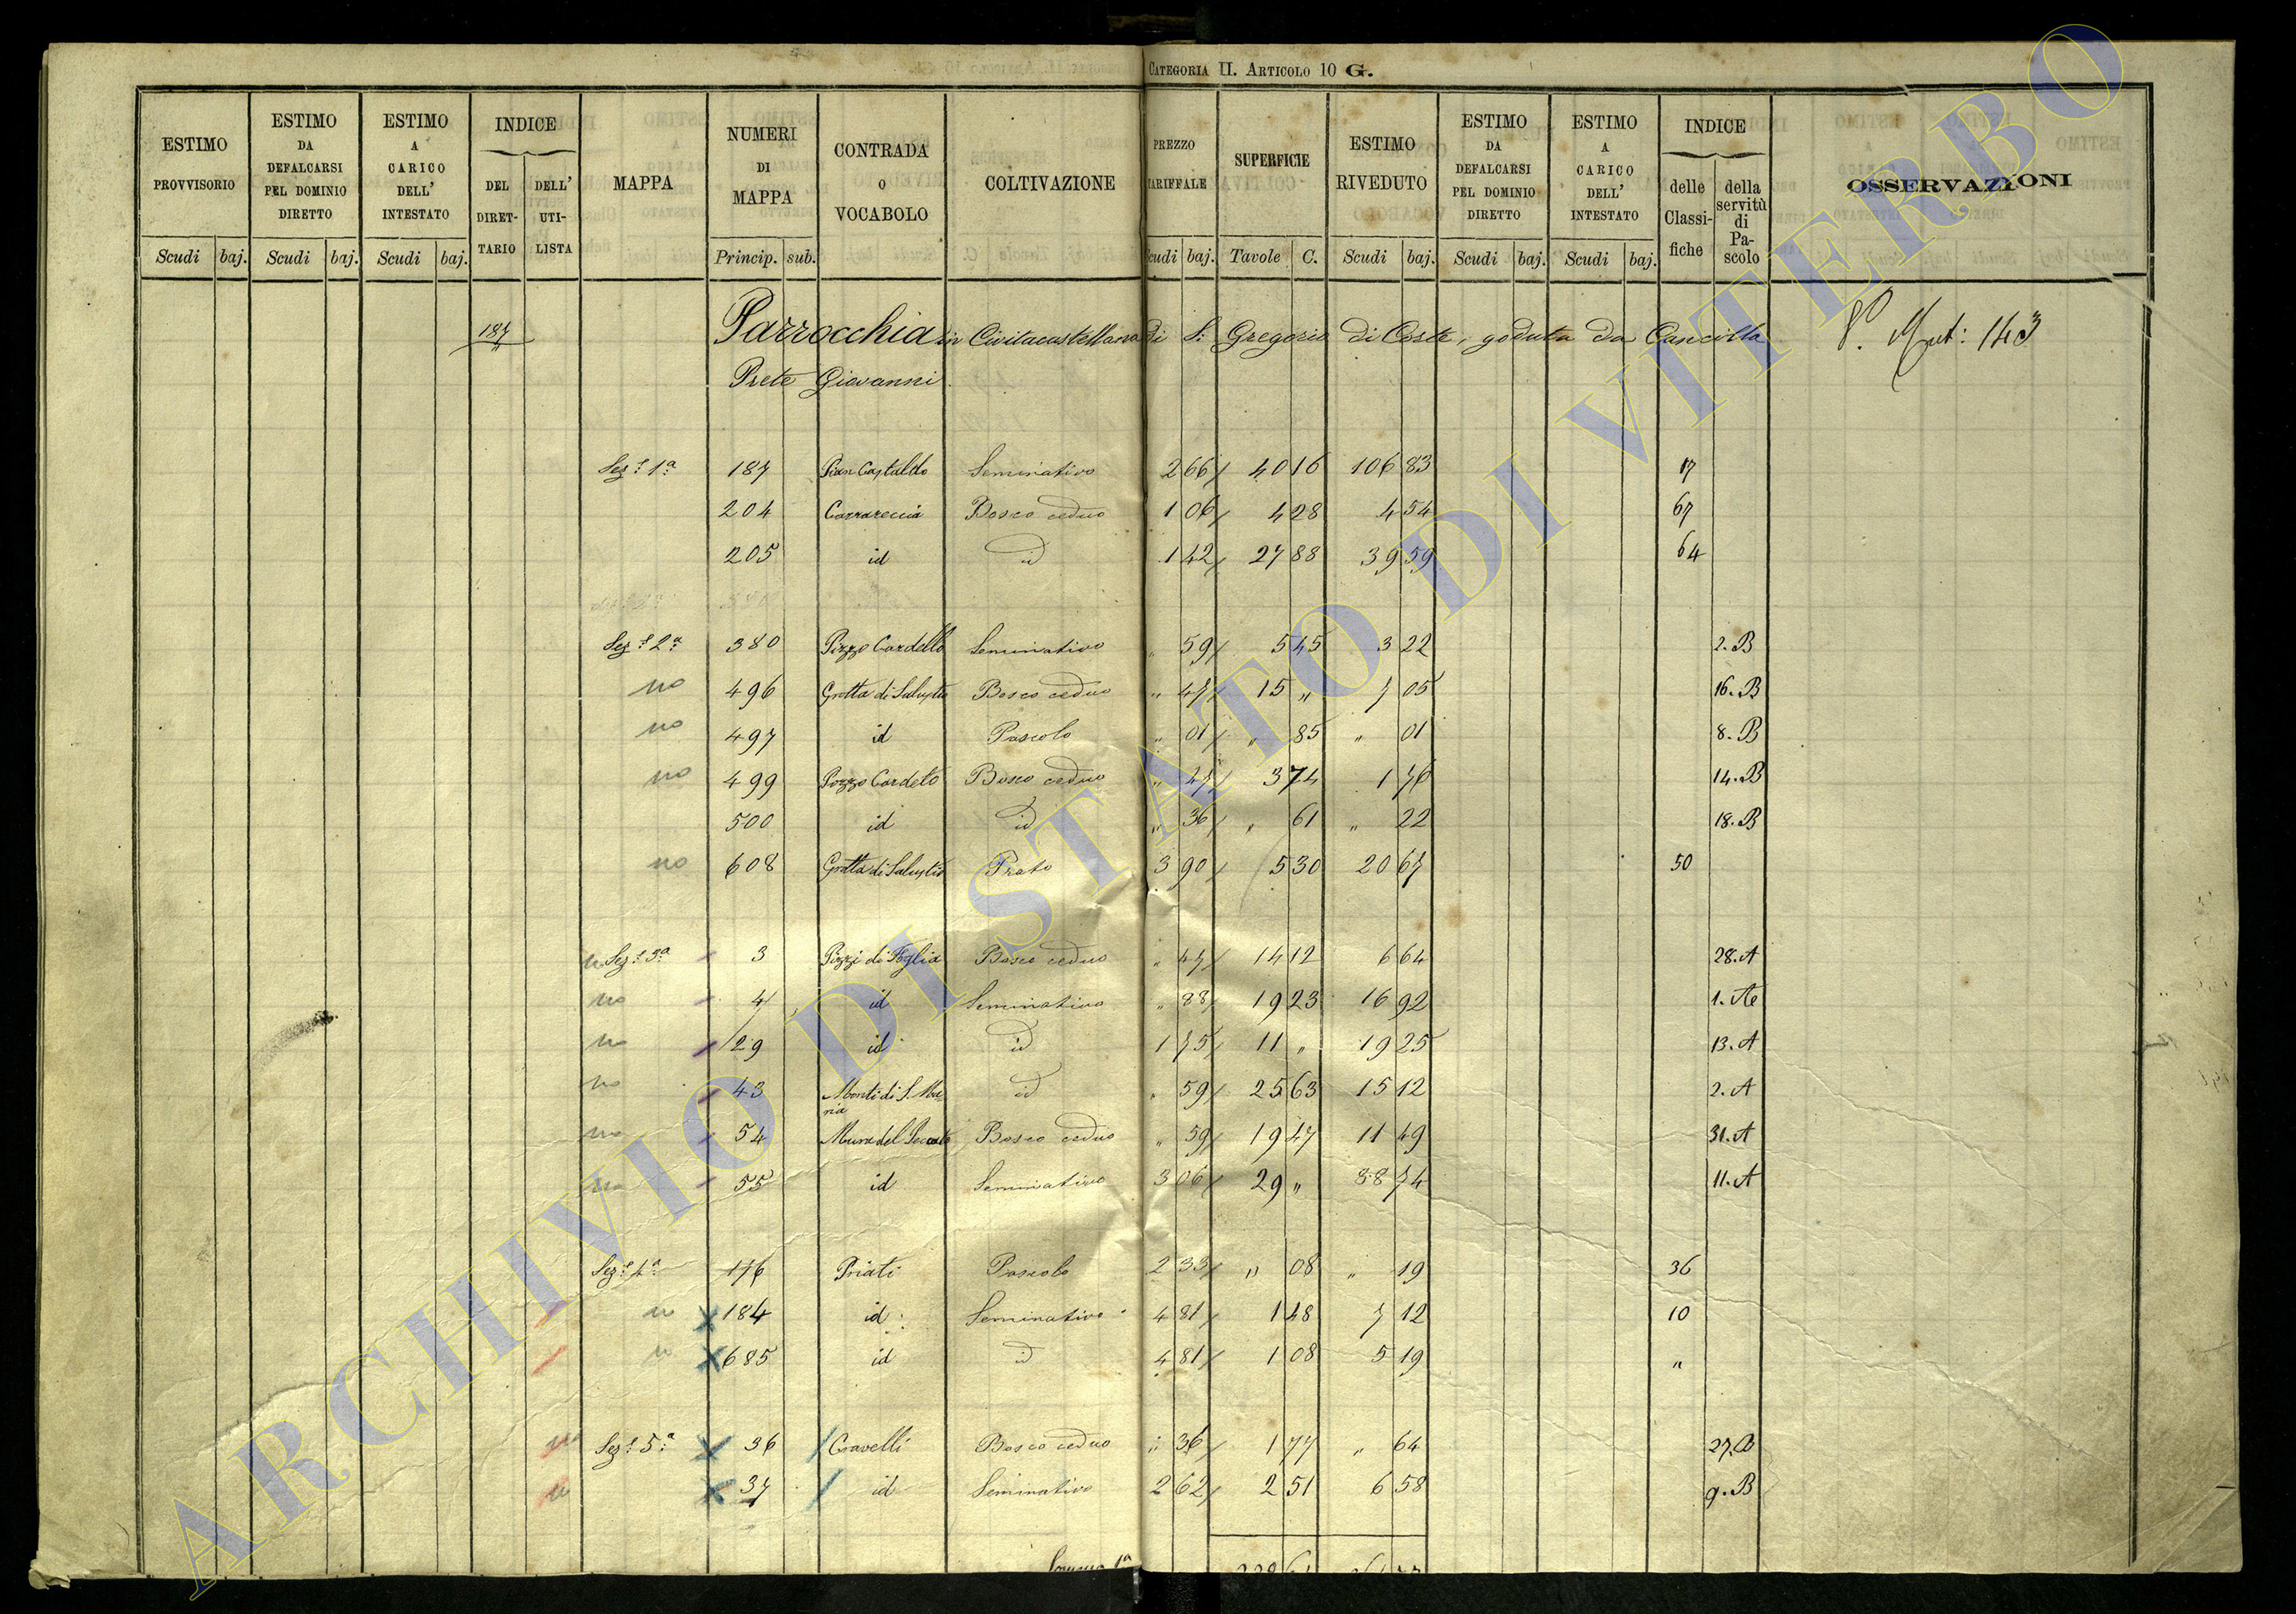 CATEGORIA II. ARTICOLO 10 G.
ESTIMO PROVVISORIO Scudi baj.
ESTIMO DA DEFALCARSI PEL DOMINIO DIRETTO Scudi baj.
ESTIMO A CARICO DELL' INTESTATO Scudi baj.
INDICE DEL DIRET-TARIO DELL' UTI-LISTA
MAPPA
NUMERI DI MAPPA Princip. sub.
CONTRADA O VOCABOLO
COLTIVAZIONE
PREZZO TARIFFALE Scudi baj.
SUPERFICIE Tavole C.
ESTIMO RIVEDUTO Scudi baj.
ESTIMO DA DEFALCARSI PEL DOMINIO DIRETTO Scudi baj.
ESTIMO A CARICO DELL' INTESTATO Scudi baj.
INDICE delle Classi-fiche della servitù di Pa-scolo
OSSERVAZIONI
187 Parrocchia in Civitacastellana di S. Gregorio di Coste, goduta da Cancilla V. Mut: 143
Prete Giovanni
Sez.e 1a 187 Pian Castaldo Seminativo 2 66 40 16 106 83 17
204 Carrareccia Bosco ceduo 1 06 4 28 4 54 67
205 id id 1 42 27 88 39 59 64
Sez.e 2a 380 Pozzo Cardello Seminativo " 59 5 45 3 22 2. B
no 496 Grotta di Salustio Bosco ceduo " 47 15 " 7 05 16. B
no 497 id Pascolo " 01 " 85 " 01 8. B
no 499 Pozzo Cardeto Bosco ceduo " 47 3 74 1 76 14. B
500 id id " 36 " 61 " 22 18. B
no 608 Grotta di Salustio Prato 3 90 5 30 20 67 50
Sez.e 3a 3 Pozzi di Foglia Bosco ceduo " 47 14 12 6 64 28. A
no 4 id Seminativo " 88 19 23 16 92 1. A
no 29 id id 1 75 11 " 19 25 13. A
no 43 Monti di S. Maria id " 59 25 63 15 12 2. A
no 54 Mura del Peccato Bosco ceduo " 59 19 47 11 49 31. A
no 55 id Seminativo 3 06 29 " 88 74 11. A
Sez.e 4a 176 Priati Pascolo 2 33 " 08 " 19 36
184 id Seminativo 4 81 1 48 7 12 10
685 id id 4 81 1 08 5 19 "
Sez.e 5a 36 Cravelli Bosco ceduo " 36 1 77 " 64 27. B
37 id Seminativo 2 62 2 51 6 58 9. B
Somma 1a
ARCHIVIO DI STATO DI VITERBO